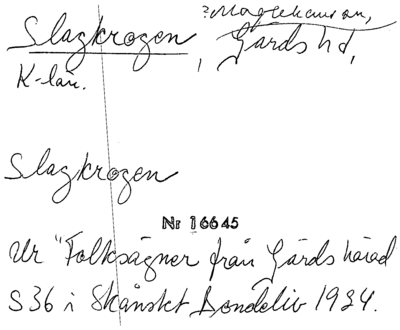 Slagkrogen, Gärds hd,
K-län.
Slagkrogen
Nr 16645
Ur "Folksägner från Gärds härad
S 36 i Skånskt Bondeliv 1934.